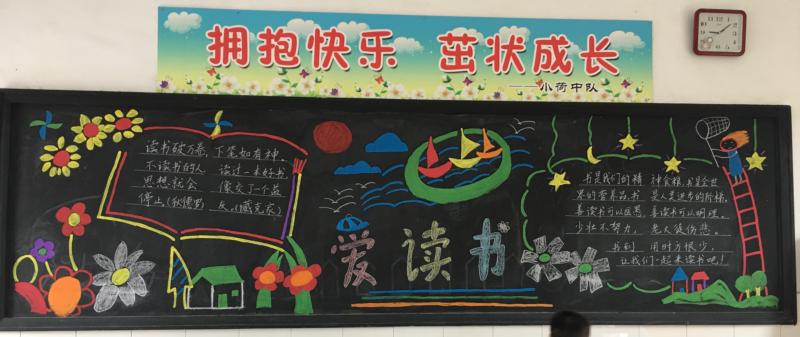 拥抱快乐 茁状成长
——小荷中队
读书破万卷,下笔如有神。
不读书的人
思想就会
停止(狄德罗)
读过一本好书
像交了一个益
友。(臧克家)
爱读书
书是我们的精 神食粮,书是全世
界的营养品,书 是人类进步的阶梯。
善读书可以医愚,善读书可以明理。
少壮不努力, 老大徒伤悲。
书到 用时方恨少,
让我们一起来读书吧!